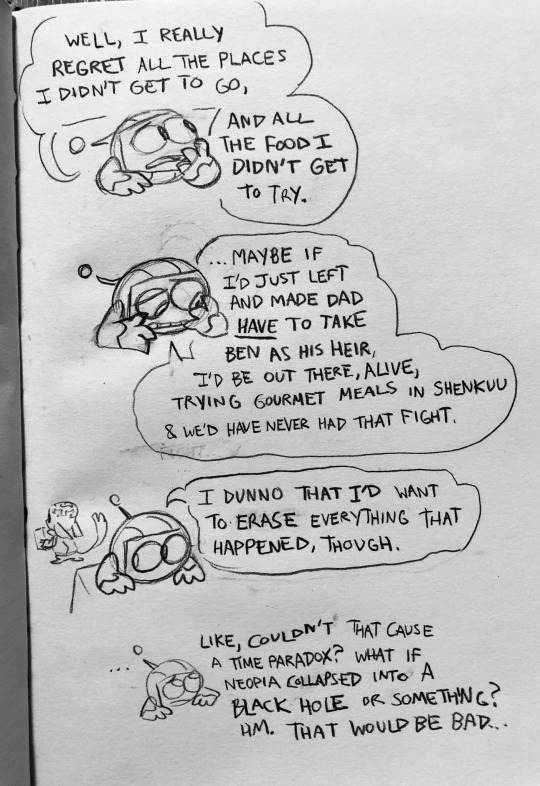 WELL, I REALLY
REGRET ALL THE PLACES
I DIDN'T GET TO GO,
AND ALL
THE FOOD I
DIDN'T GET
TO TRY.
...MAYBE IF
I'D JUST LEFT
AND MADE DAD
HAVE TO TAKE
BEN AS HIS HEIR,
I'D BE OUT THERE, ALIVE,
TRYING GOURMET MEALS IN SHENKUU
& WE'D HAVE NEVER HAD THAT FIGHT.
I DUNNO THAT I'D WANT
TO ERASE EVERYTHING THAT
HAPPENED, THOUGH.
...
LIKE, COULDN'T THAT CAUSE
A TIME PARADOX? WHAT IF
NEOPIA COLLAPSED INTO A
BLACK HOLE OR SOMETHING?
HM. THAT WOULD BE BAD...